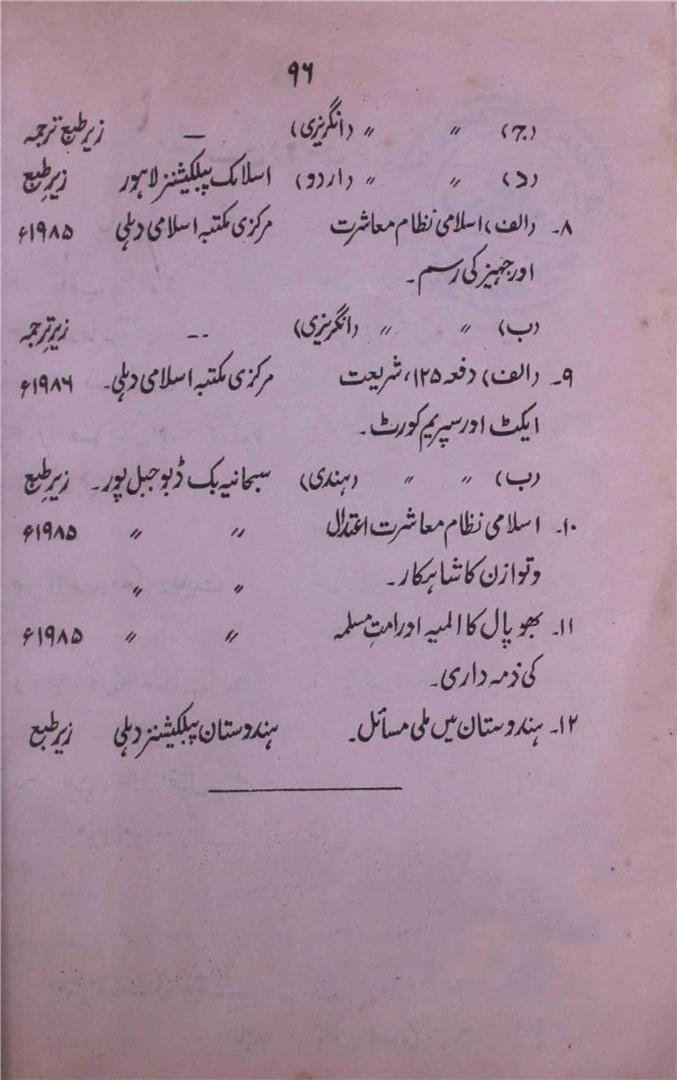 ۹۶
(ج) " " (انگریزی) — زیر طبع ترجمہ
(د) " " (اردو) اسلامک پبلیکیشنز لاہور زیر طبع
۸۔ (الف) اسلامی نظام معاشرت مرکزی مکتبہ اسلامی دہلی ۱۹۸۵ء
اور جہیز کی رسم۔
(ب) " " (انگریزی) -- زیر ترجمہ
۹۔ (الف) دفعہ ۱۲۵، شریعت مرکزی مکتبہ اسلامی دہلی۔ ۱۹۸۶ء
ایکٹ اور سپریم کورٹ۔
(ب) " " (ہندی) سبحانیہ بک ڈپو جبل پور۔ زیر طبع
۱۰۔ اسلامی نظام معاشرت اعتدال " " ۱۹۸۵ء
و توازن کا شاہکار۔ " "
۱۱۔ بھوپال کا المیہ اور امت مسلمہ " " ۱۹۸۵ء
کی ذمہ داری۔
۱۲۔ ہندوستان میں ملی مسائل۔ ہندوستان پبلیکیشنز دہلی زیر طبع